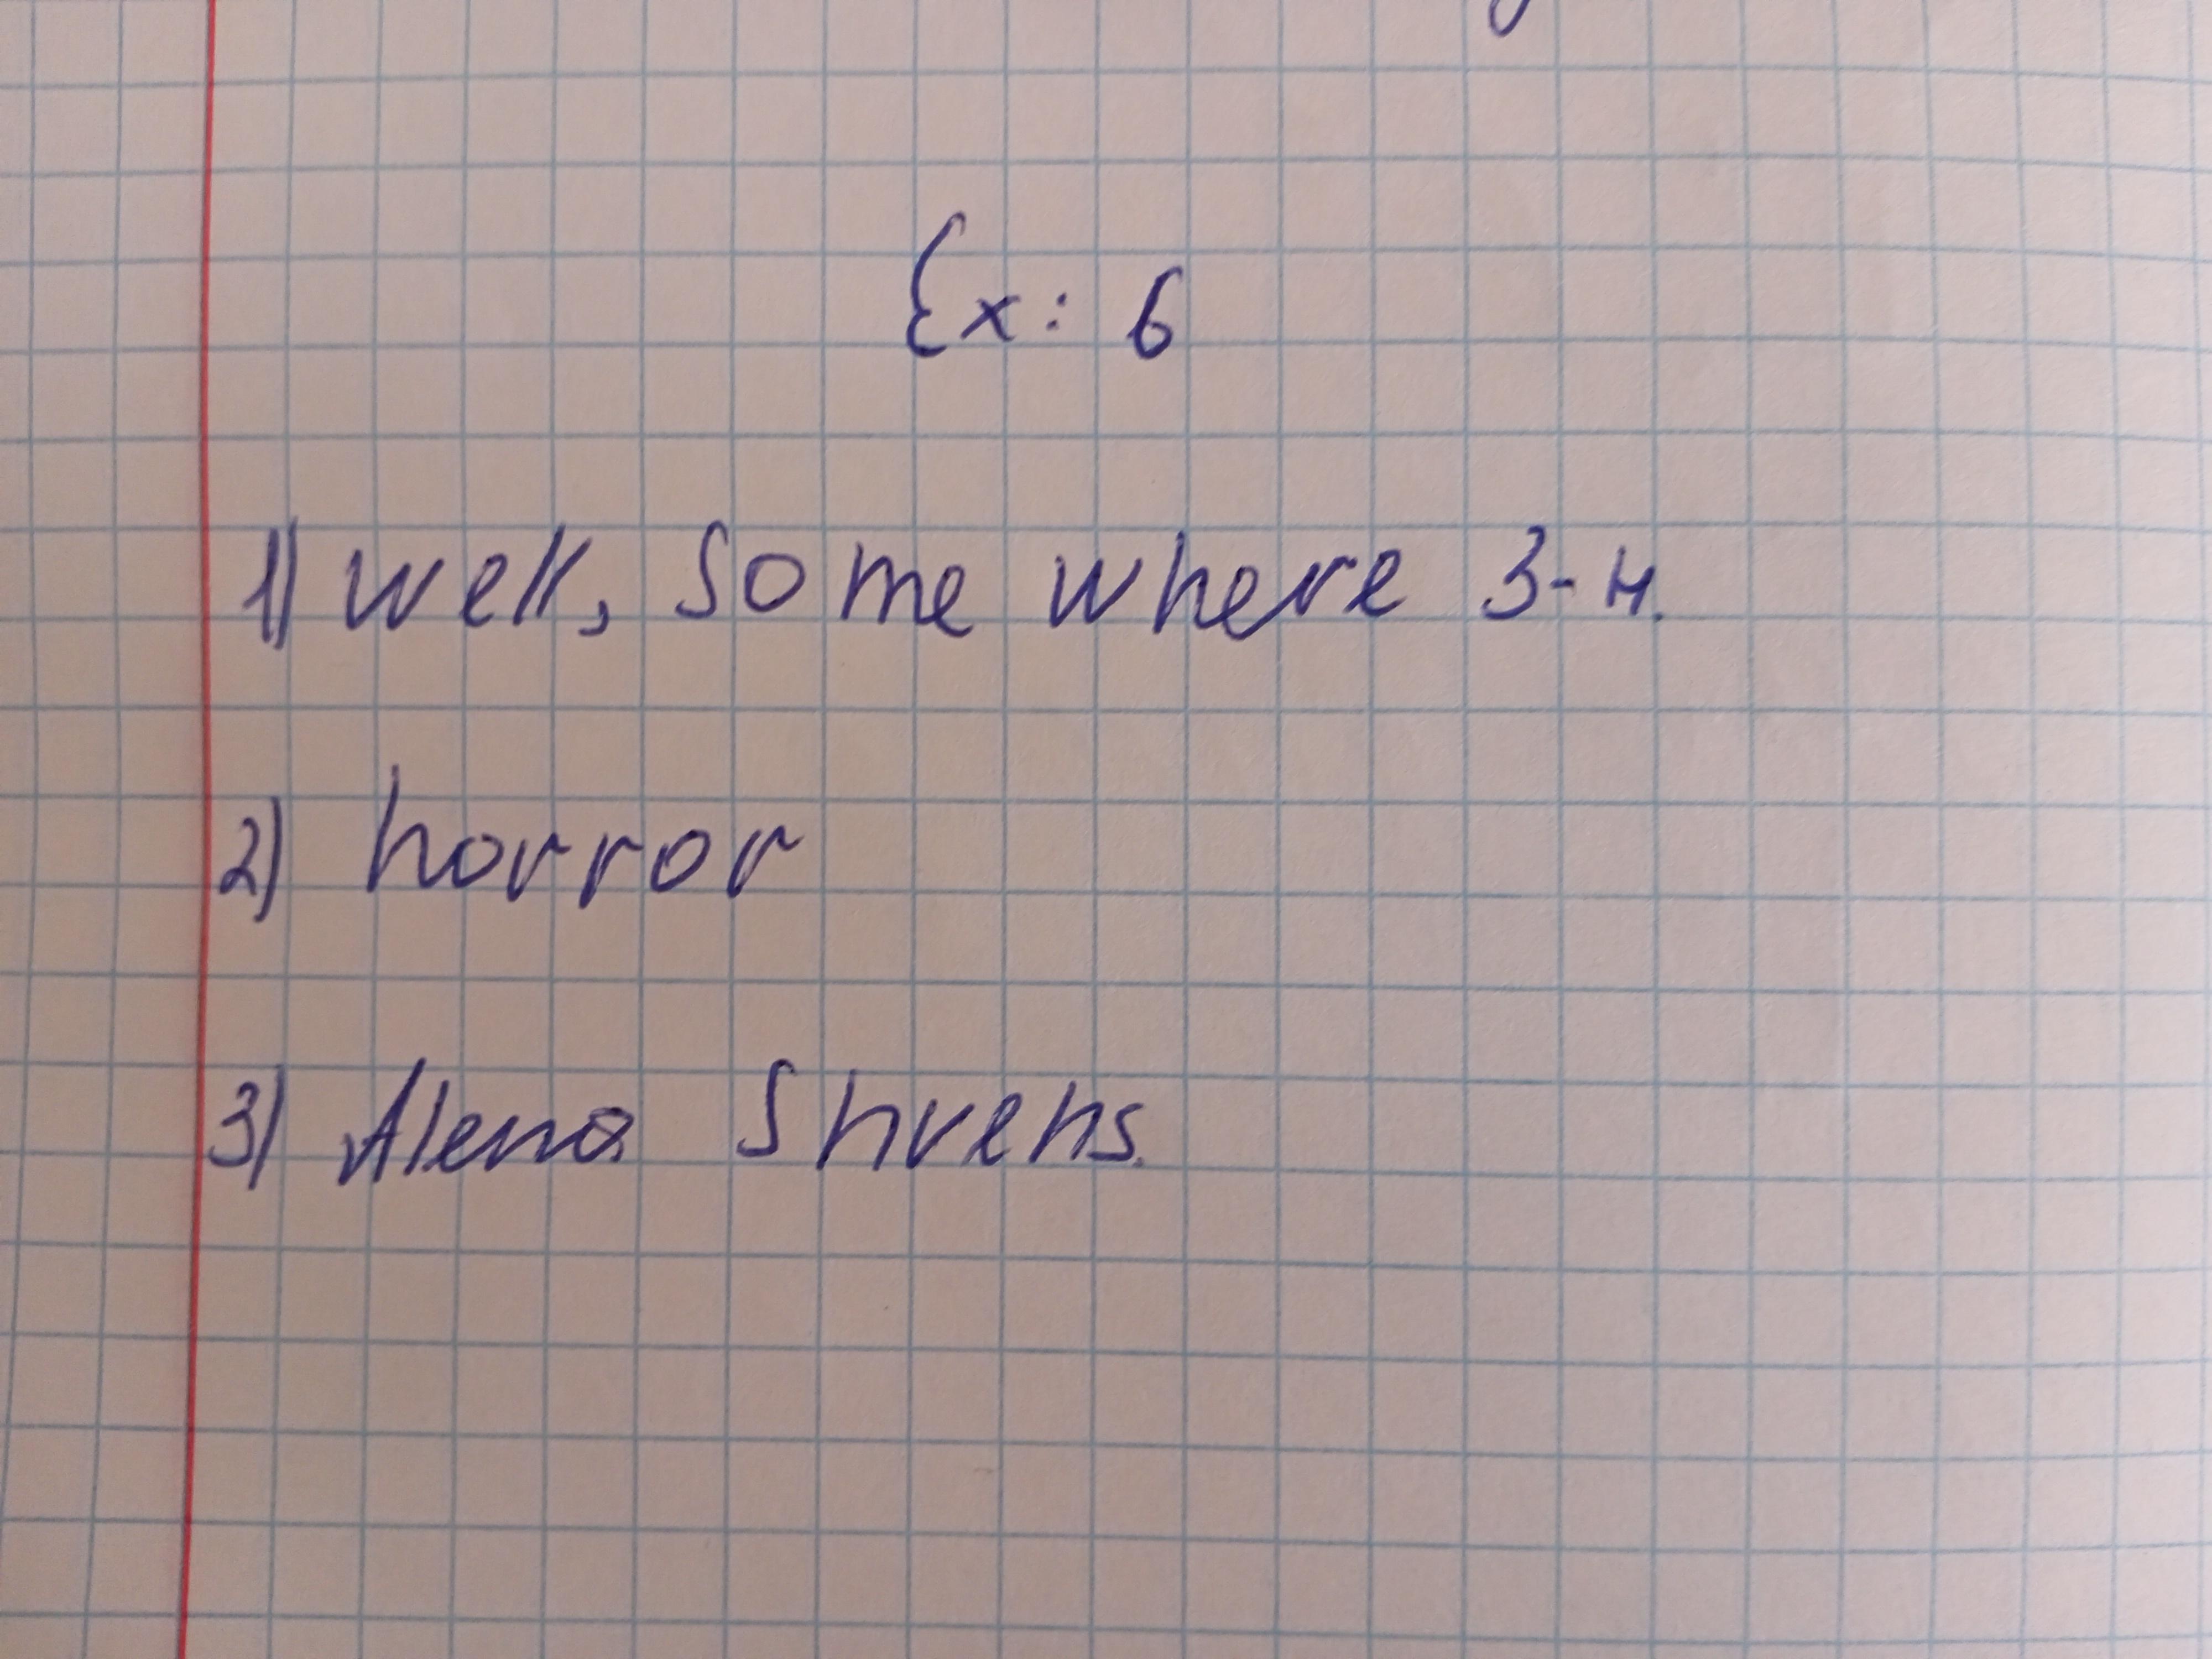 Ex: 6
1) well, some where 3-4.
2) horror
3) Alena Shvehs.